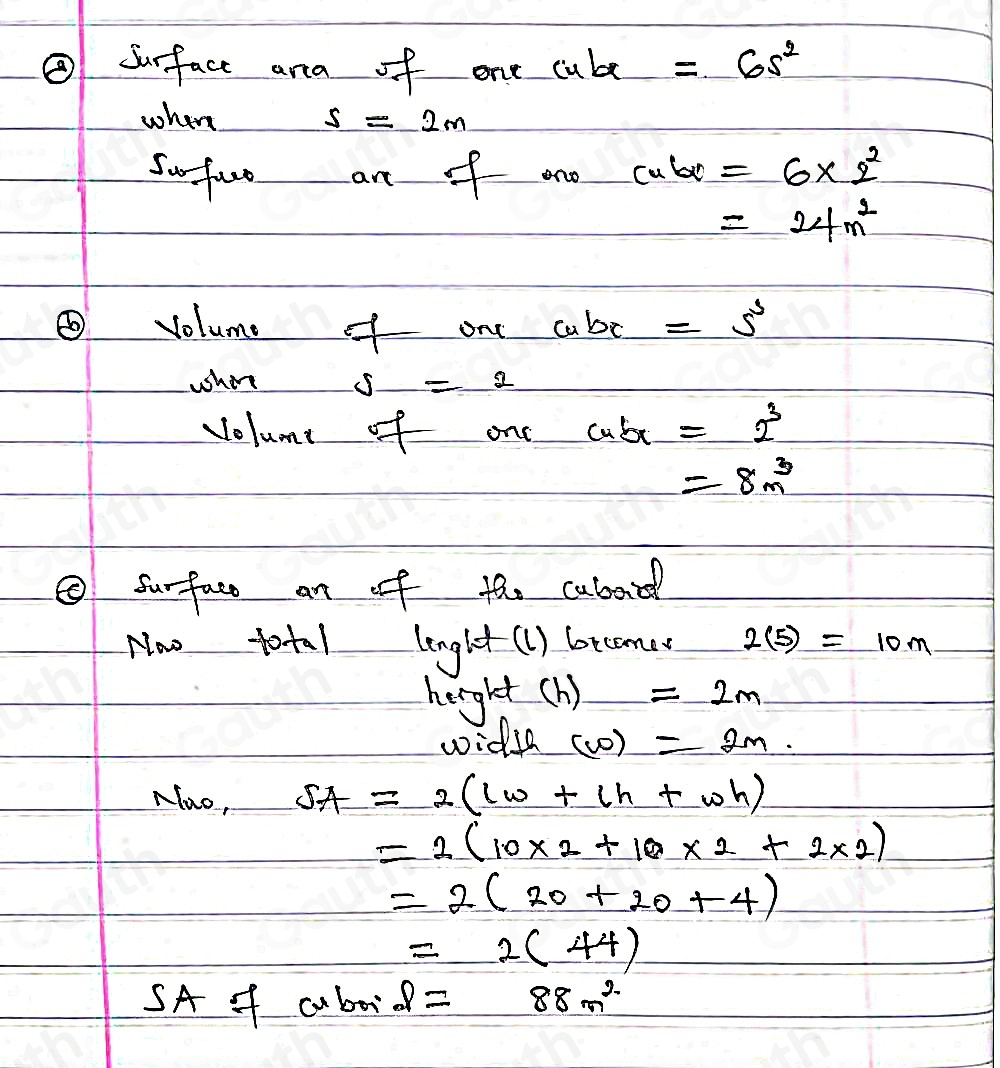 (a) Surface area of one cube = 6s²
where s = 2m
Surfuce are of one cube = 6 × 2²
= 24m²
(b) Volume of one cube = s³
where s = 2
Volume of one cube = 2³
= 8m³
(c) Surface are of the cuboid
Now total lenght (l) becomes 2(5) = 10m
height (h) = 2m
width (w) = 2m.
Now, SA = 2(lw + lh + wh)
= 2(10×2 + 10 × 2 + 2×2)
= 2(20 + 20 + 4)
= 2(44)
SA of cuboid = 88m²